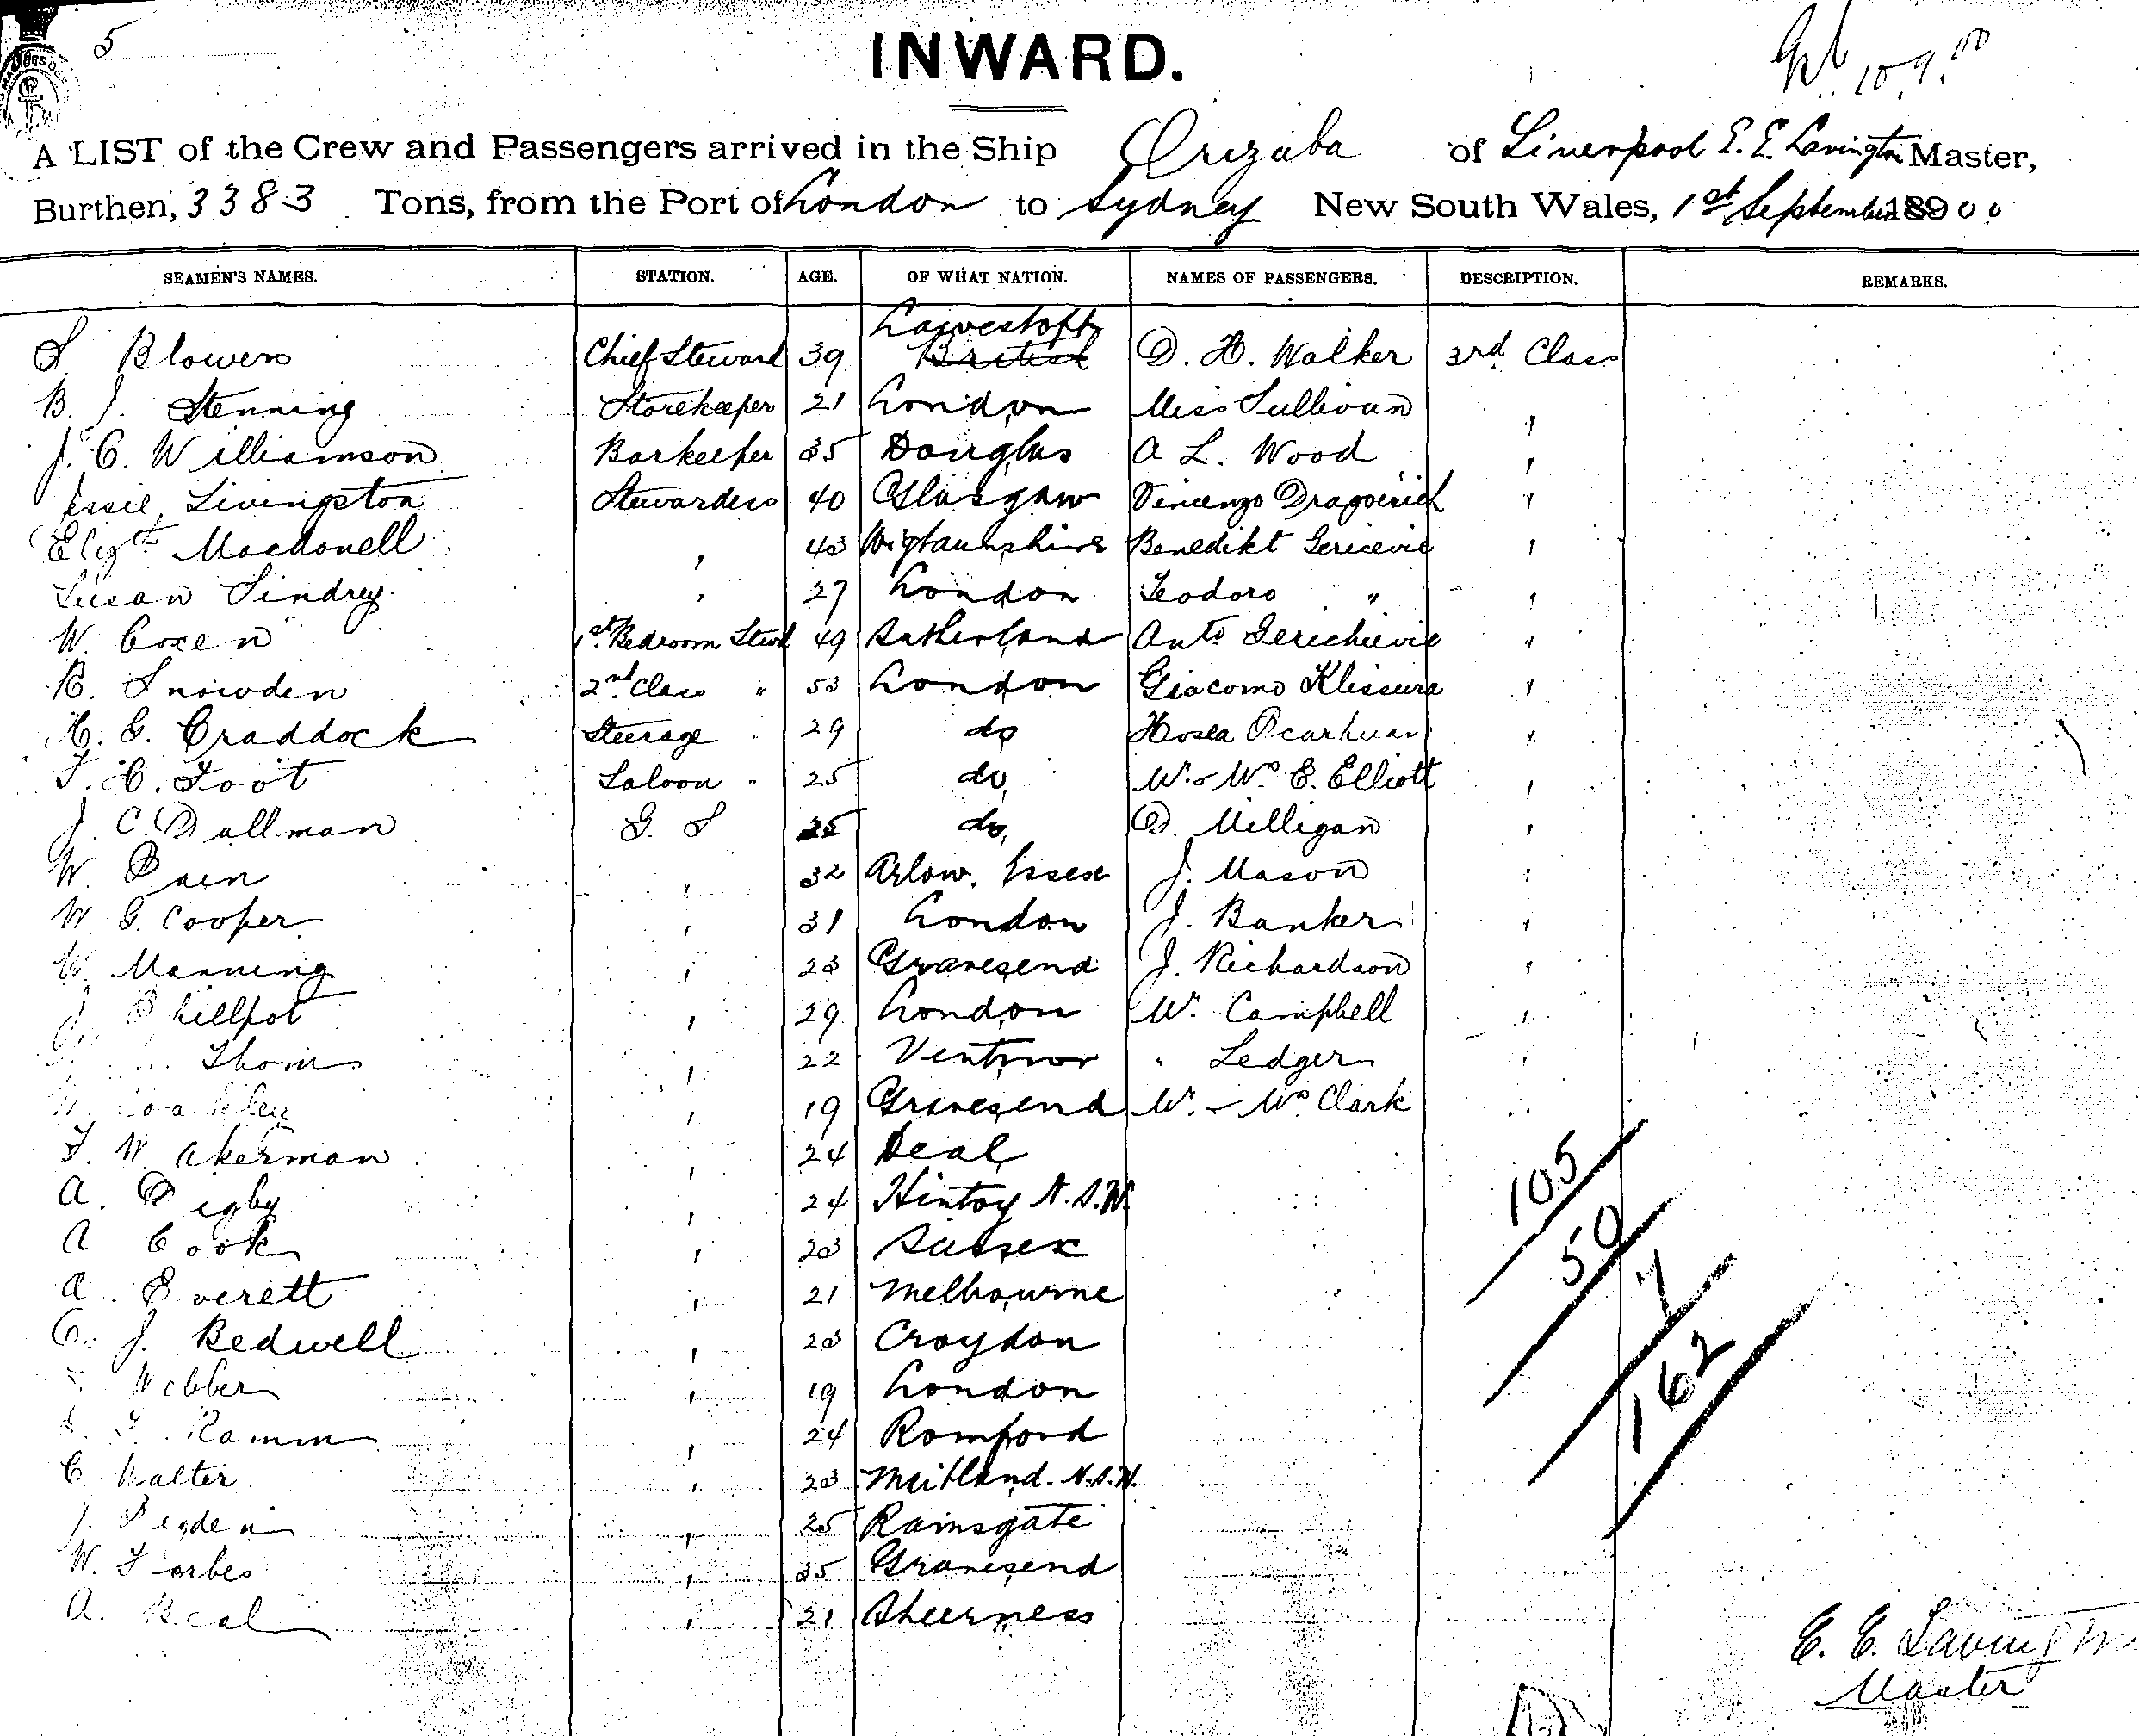 5
INWARD.
A LIST of the Crew and Passengers arrived in the Ship Orizaba of Liverpool E. E. Lavington Master,
Burthen, 3383 Tons, from the Port of London to Sydney New South Wales, 1st September 18900
SEAMEN'S NAMES. STATION. AGE. OF WHAT NATION. NAMES OF PASSENGERS. DESCRIPTION. REMARKS.
Lowestoft
S Blowers Chief Steward 39 British D. H. Walker 3rd Class
B. J. Stenning Storekeeper 21 London Miss Sullivan "
J. C. Williamson Barkeeper 35 Douglas A L. Wood "
Jessie Livingston Stewardess 40 Glasgow Vincenzo Dragoevich "
Elizth Macdonell " 43 Wigtaunshire Benedikt "
Susan Sindrey " 27 London Teodoro " "
W. Coxen 1st Bedroom Stwd 49 Sutherland Anto "
R. Snowden 2nd Class " 53 London Giacomo Klissura "
H. G. Craddock Steerage " 29 do Hosea "
F. C. Foot Saloon " 25 do Mr & Mrs E. Elliott "
J. C. Dallman G. S 25 do D. Milligan "
W. Pain " 32 Arlow. Essex J. Mason "
W. G. Cooper " 31 London J. Banker "
W. Manning " 23 Gravesend J. Richardson "
Phillpot " 29 London Mr. Campbell "
Thom " 22 Ventnor " Ledger "
" 19 Gravesend Mr. & Mrs Clark "
F. W. Akerman " 24 Deal
A. Digby " 24 Hinton N.S.W.
A Cook " 23 Sussex
A. Everett " 21 Melbourne
C. J. Bedwell " 23 Croydon
Webber " 19 London
Ramm " 24 Romford
C. Walter " 23 Maitland. N.S.W.
J. Pegden " 25 Ramsgate
W. Forbes " 35 Gravesend
A. Beal " 21 Sheerness
105
50
7
162
E. E. Lavington
Master